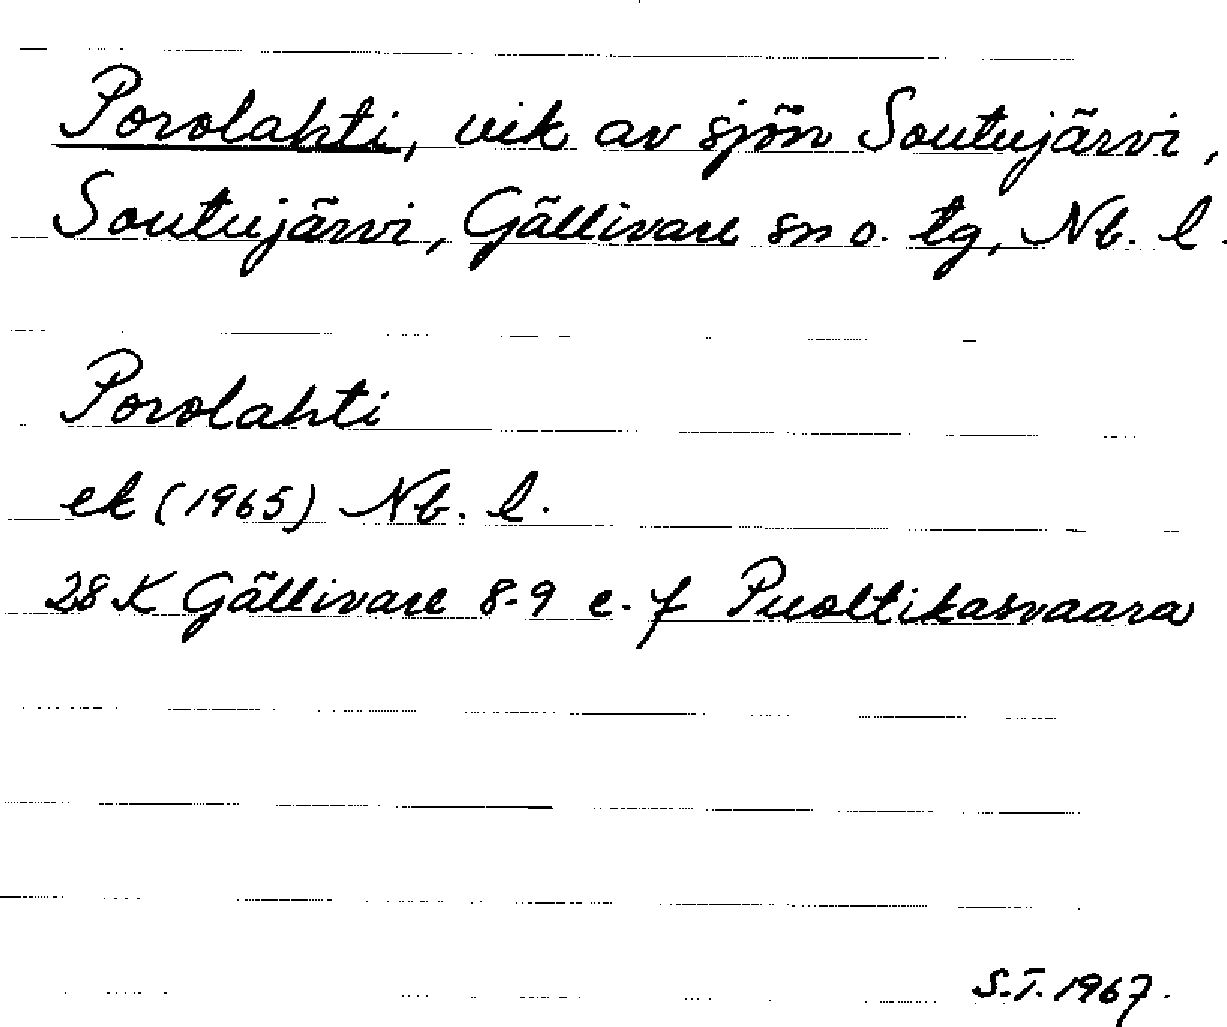 Porolahti, vik av sjön Soutujärvi,
Soutujärvi, Gällivare sn o. tg, Nb. l.
Porolahti
ek (1965) Nb. l.
28 K Gällivare 8-9 e-f Puoltikasvaara
S.T. 1967.